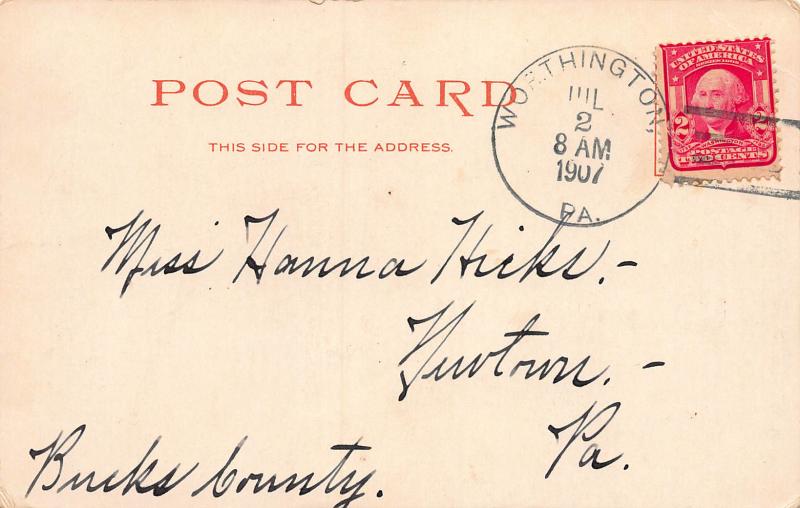 POST CARD
THIS SIDE FOR THE ADDRESS.
WORTHINGTON,
JUL
2
8 AM
1907
PA.
UNITED STATES
OF AMERICA
2 2
WASHINGTON
POSTAGE
TWO CENTS
Miss Hanna Hicks.-
Newtown.-
Pa.
Bucks County.